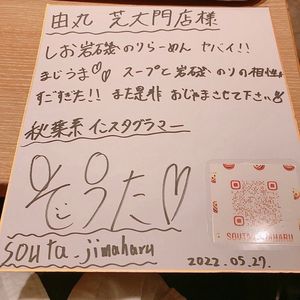 由丸 芝大門店様
しお岩磯のりらーめん ヤバイ!!
まじうま♡♡ スープと岩磯のりの相性
すごすぎた!! また是非おじゃまさせて下さい
秋葉系インスタグラマー
そうた♡
souta_jimaharu
SOUTA_JIMAHARU
2022.05.27.